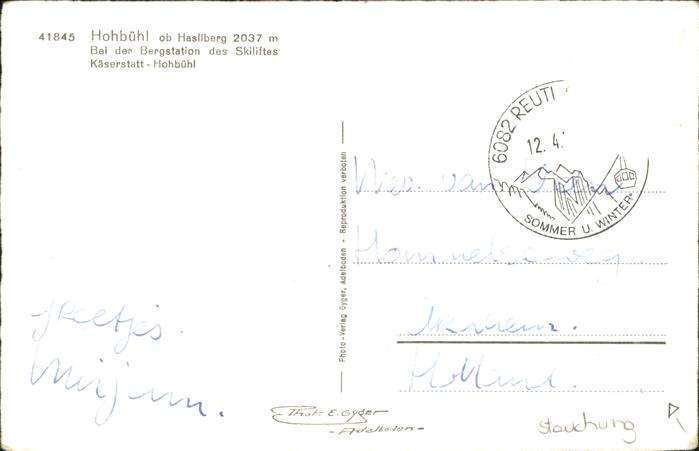 41845 Hohbühl ob Hasliberg 2037 m
Bei der Bergstation des Skiliftes
Käserstatt - Hohbühl
6082 REUTI
12.4.
SOMMER U. WINTER
Photo-Verlag Gyger, Adelboden - Reproduktion verboten
van
Holland.
groetjes
Mirjam.
Phot. E. Gyger
- Adelboden -
stauchung